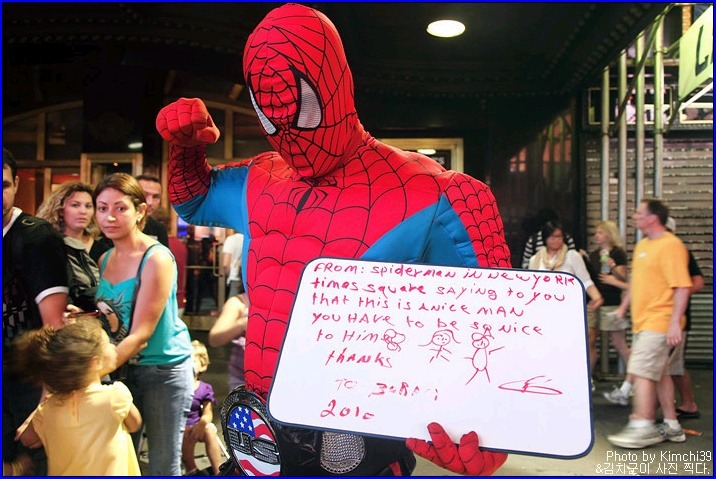 FROM: SPIDERMAN IN NEW YORK
times square SAYING to YOU
that this is A NICE MAN
YOU HAVE to BE SO NICE
to HIM
thanks
TO
2010
US
Photo by Kimchi39
&김치군이 사진 찍다.